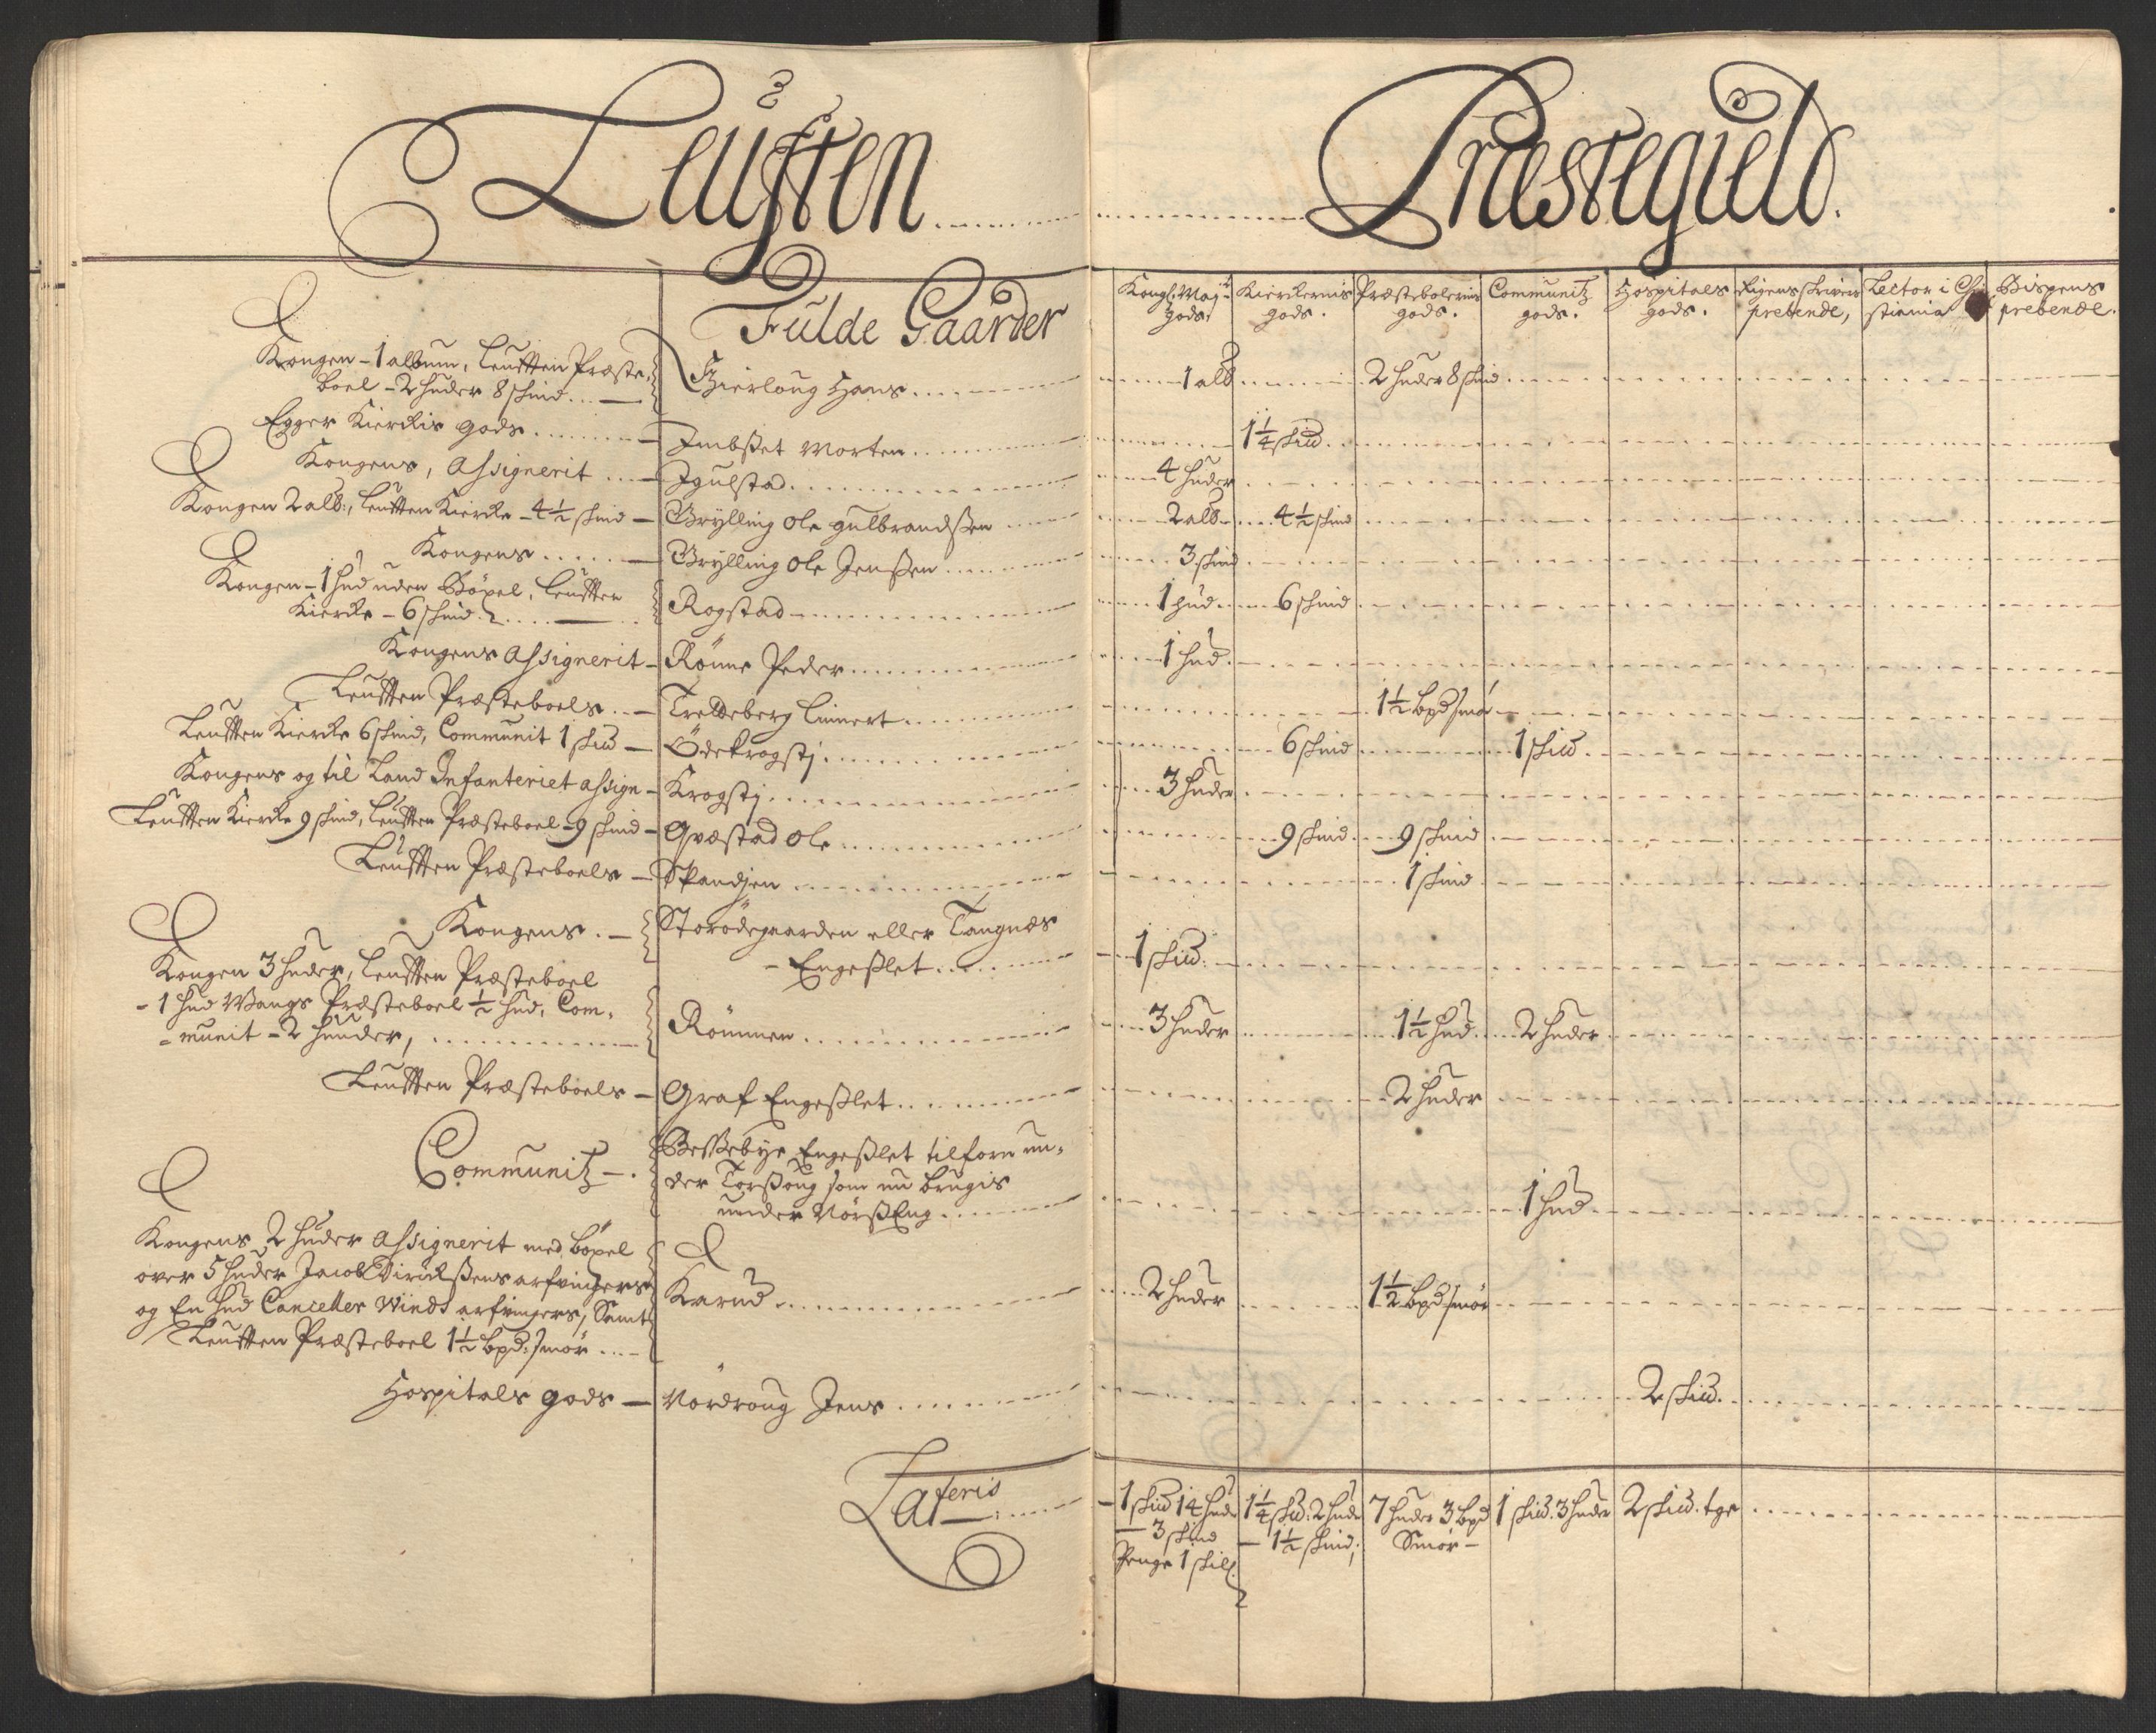 Leütten Præstegield.
Fulde Gaarder
Kongl: Maj:ts gods. Kierkernis gods. Præstebolernis gods. Communitz gods. Hospitals gods. Rigens skrivers prebende, Lector i Chri stiania Bispens prebende.
Kongen - 1 album, Leutten Præste,
boel - 2 huder 8 skind Hans 1 alb 2 huder 8 skind
Egger Kierckis gods Imbset Morten 1 1/4 skud
Kongens, Assignerit Igulstad 4 huder
Kongen 2 alb:, Leutten Kierke - 4 1/2 skind Grylling Ole Gulbrandsen 2 alb 4 1/2 skind
Kongens Grylling Ole Jensen 3 skind
Kongen - 1 hud uden Böxel, Leutten
Kierke - 6 skind Rogstad 1 hud 6 skind
Kongens Assignerit Rönne Peder 1 hud
Leutten Præsteboels Treldeberg Linnert 1 1/2 bpd smör
Leutten Kierke 6 skind, Communit 1 skud Ödekrogstj 6 skind 1 skud
Kongens og til Land Infanteriet assign Krogstj 3 huder
Leutten Kierke 9 skind, Leutten Præsteboel - 9 skind Græstad Ole 9 skind 9 skind
Leutten Præsteboels 1 skind
Kongens Storödegaarden eller Tangnæs
- Engeslet 1 skud
Kongen 3 huder, Leutten Præsteboel
- 1 hud Wangs Præsteboel 1/2 hud, Com,
- munit - 2 huuder, Römmen 3 huder 1 1/2 hud 2 huder
Leutten Præsteboels Graf Engeslet 2 huder
Communitz Bessebye Engeslet tilforn un,
der som nu brugis
under 1 hud
Kongens 2 huder Assignerit med böxel
over 5 huder Jacob arfvingers
og En hud Canceller Winds arfvingers, Samt
Leutten Præsteboel 1 1/2 bpd: smör Karud 2 huder 1 1/2 bpd smör
Hospitals gods Nordroug Jens 2 skud.
Lateris 1 skud 14 huder 1 1/4 skud: 2 huder 7 huder 3 bpd 1 skud. 3 huder 2 skud. tge
- 3 skind - 1 1/2 skind; Smör -
Penge 1 skil